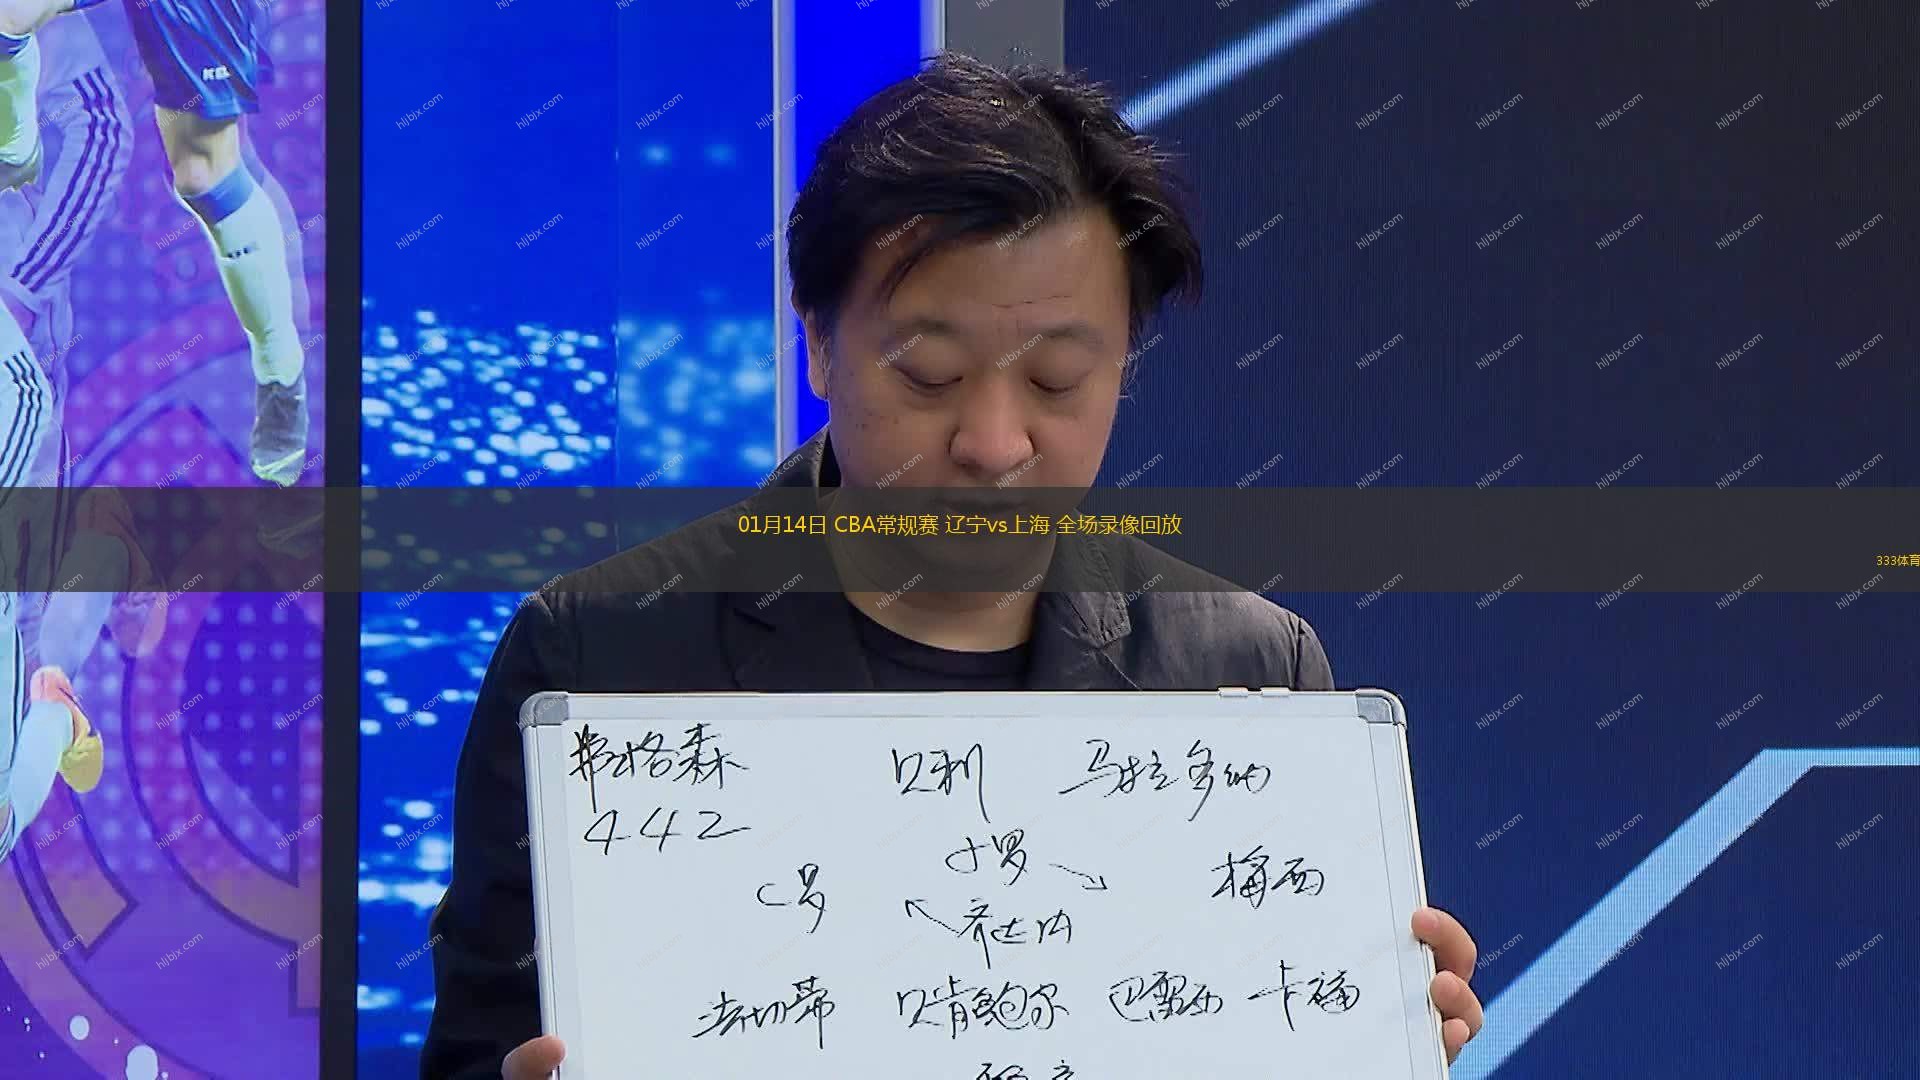 01月14日 CBA常规赛 辽宁vs上海 全场录像回放
333体育
弗格森 贝利 马拉多纳
442
小罗
C罗 梅西
齐达内
法切蒂 贝肯鲍尔 巴雷西 卡福
hljbjx.com
KEL